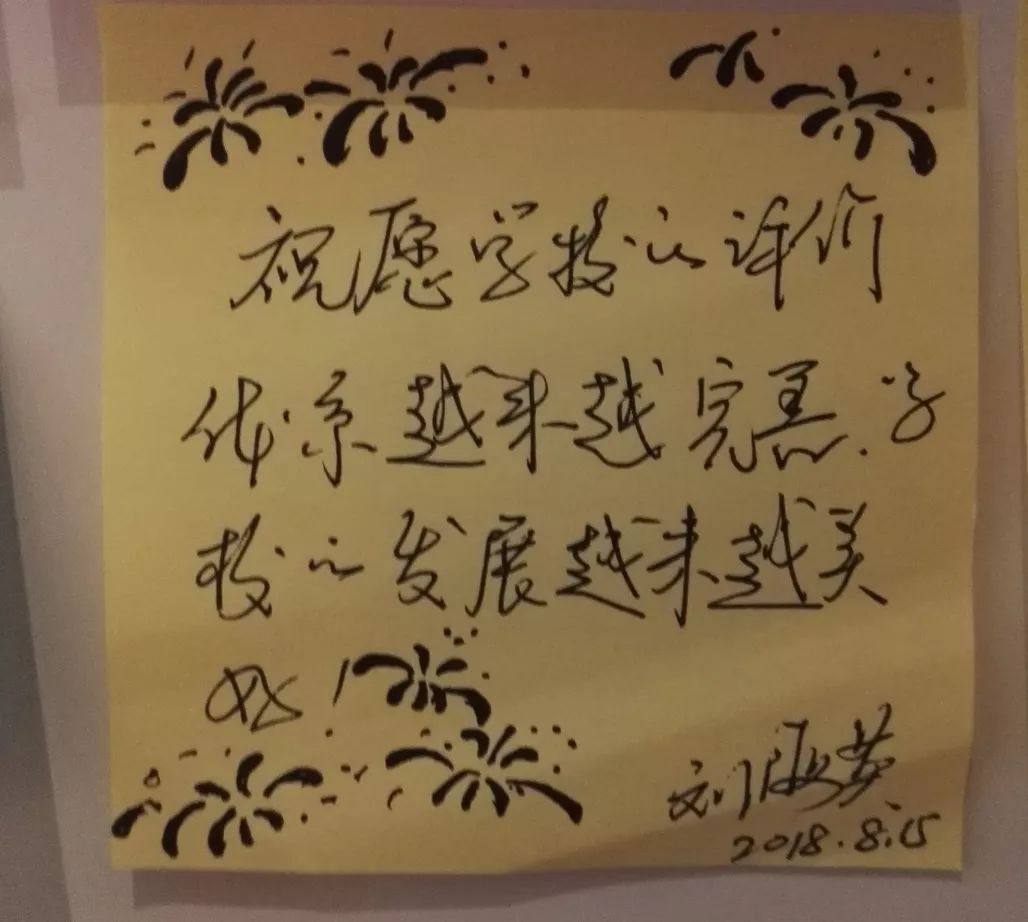 祝愿学校的评价
体系越来越完善.学
校的发展越来越美
好!
刘
2018.8.15